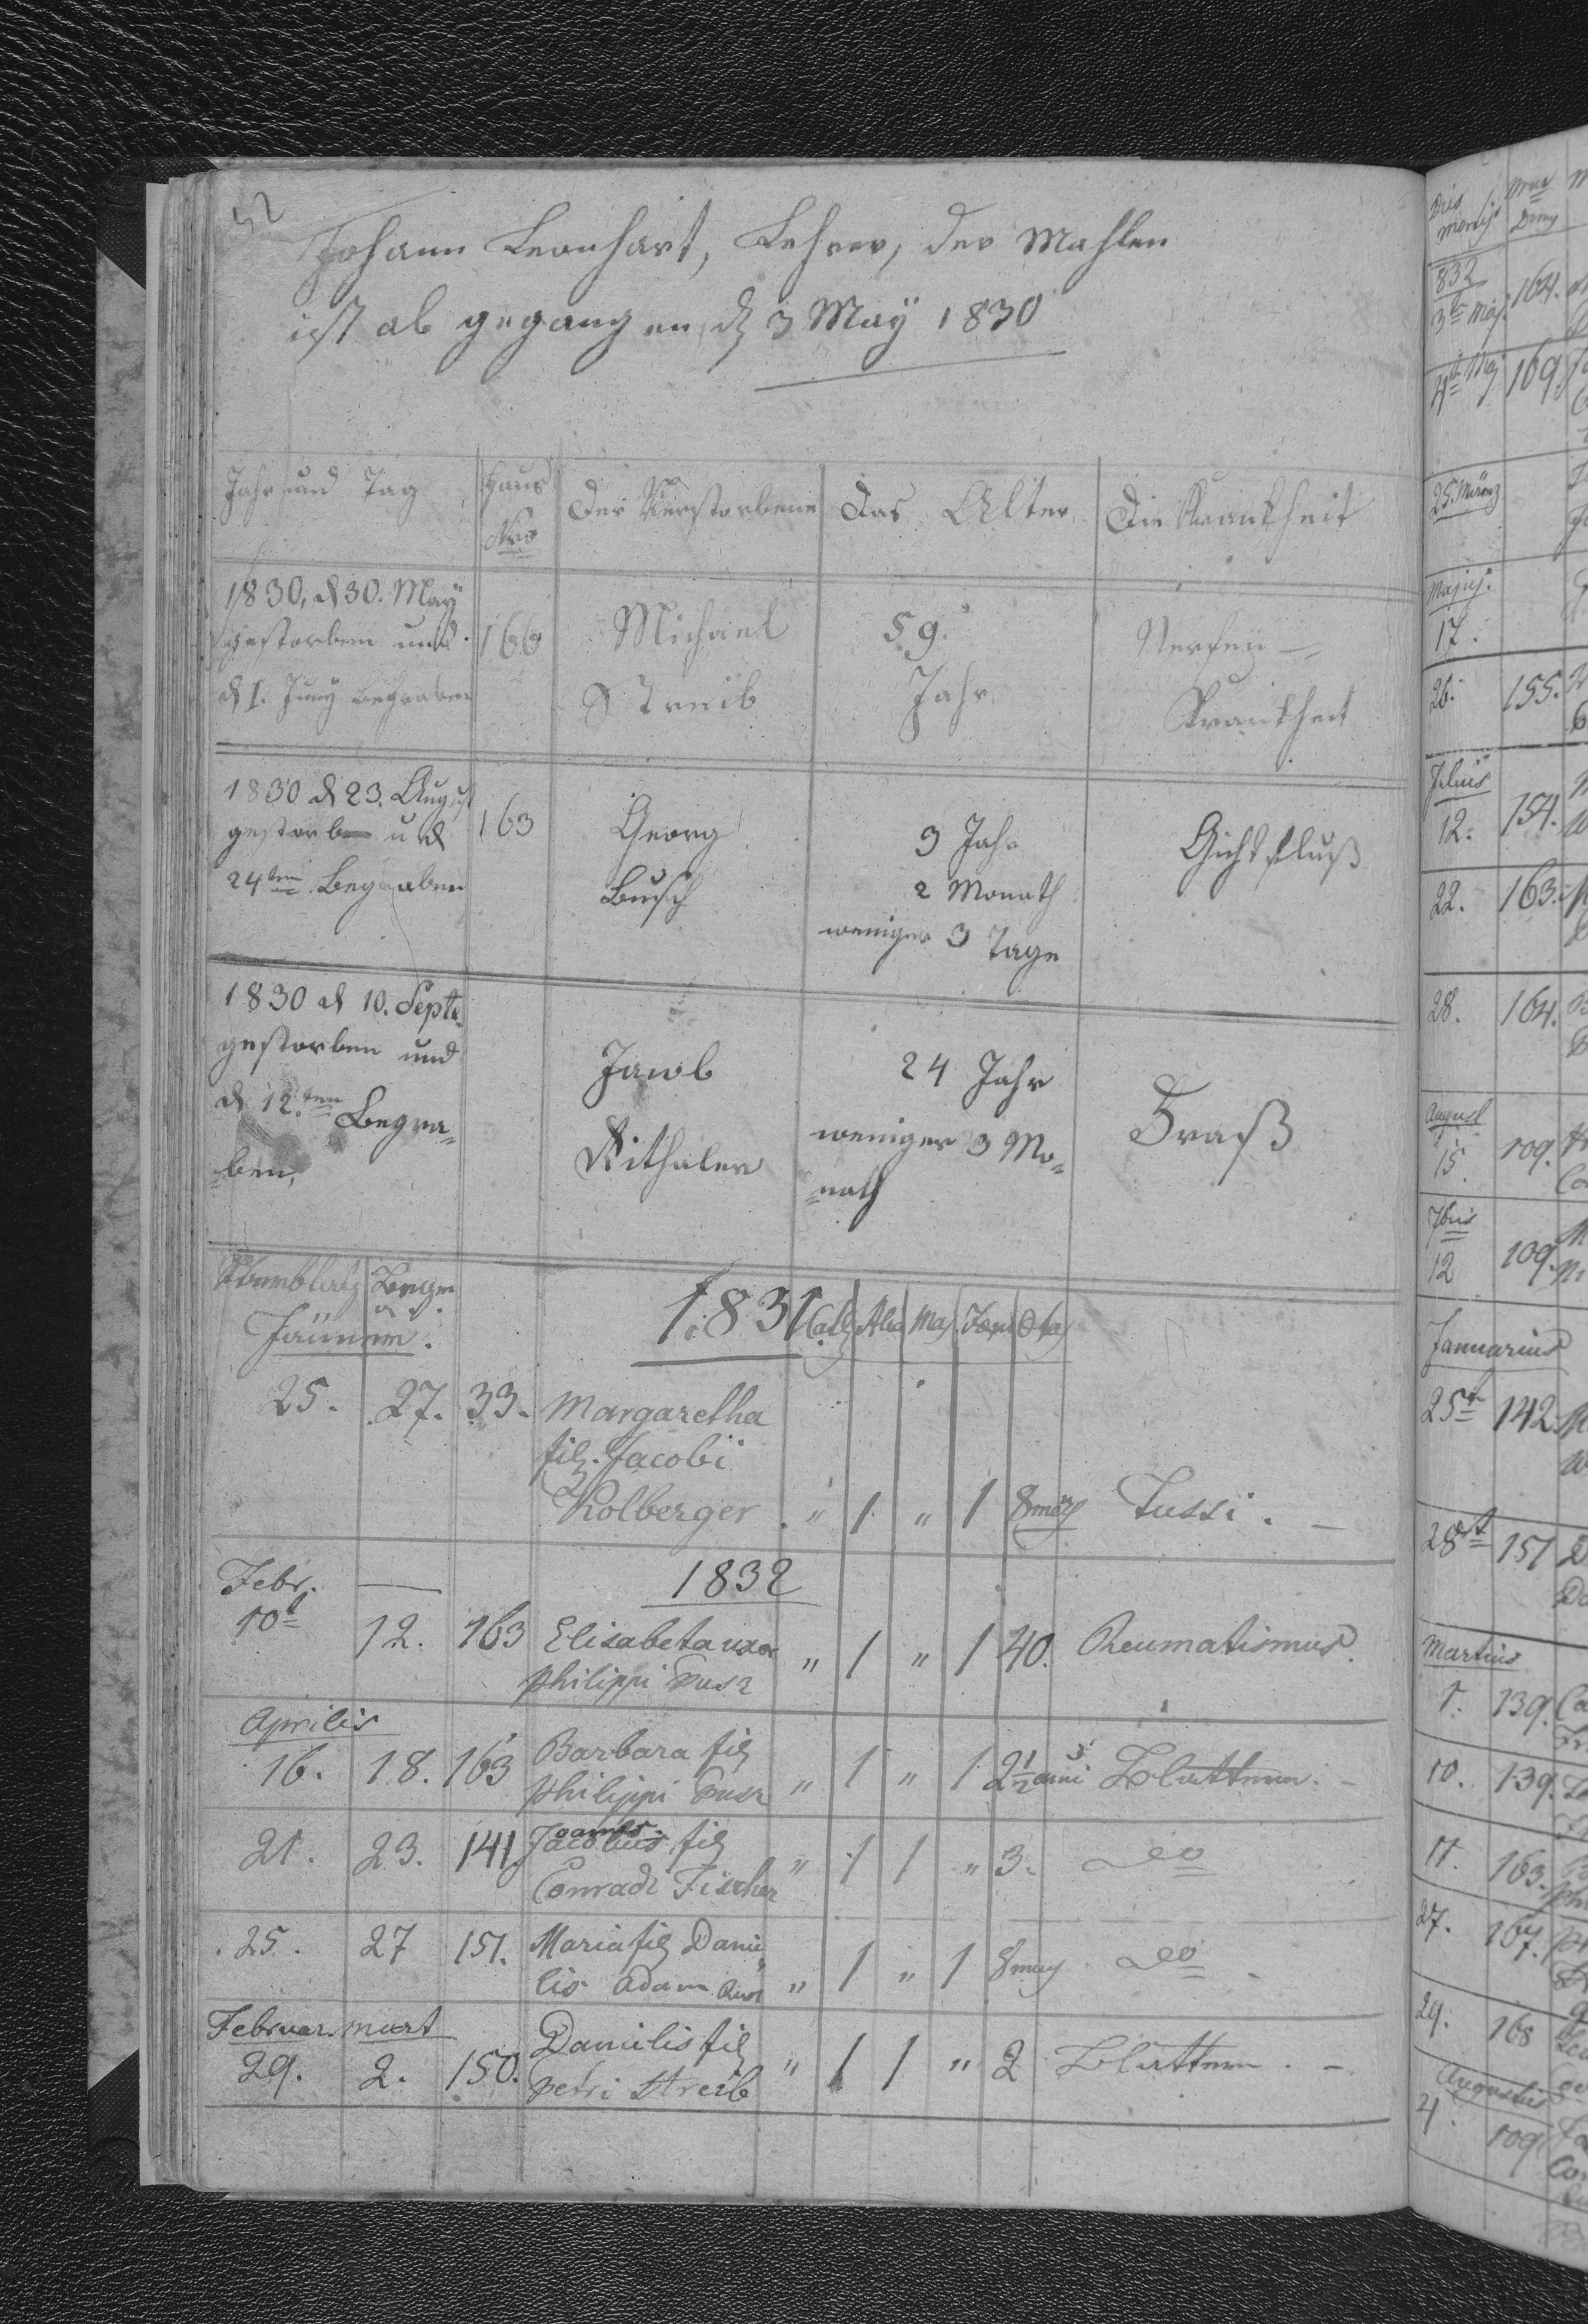 52
Johann Leonhart, Lehrer, der Mahlen
ist ab gegangen, d 3 May 1830
Jahr und Tag
Haus
Nro
Der Verstorbene
das Alter
Die Krankheit
1830, d 30. May
gestorben und
d 1. Juny begraben
166
Michael
Streib
59.
Jahr
Nerfen
Krankheit
1830 d 23. August
gestorben u d
24ten Begraben
163
Georg
Busch
3 Jahr
2 Monath
weniger 3 Tage
Gichtfluß
1830 d 10. Septe
gestorben und
d 12.ten Begra=
=ben,
Jacob
Rithaler
24 Jahr
weniger 3 Mo=
=nath
Braß
1831
Cath Alia Mas Foem Etas
25. 27. 33. Margaretha
fil. Jacobi
Kolberger " 1 " 1 8 mens Tussi. —
Febr. — 1832
10t 12. 163 Elisabeta uxor
Philippi Busz " 1 " 1 40. Reumatismus.
Aprilis
16. 18. 163 Barbara fil
Philippi Busz " 1 " 1 2½ Blattern. –
21. 23. 141. Jacobus fil
Joannes
Conradi Fischer " 1 1 " 3. do
25. 27 151. Maria fil Danie
lis Adam " 1 " 1 8 mens do
Februar. mart
29. 2. 150. Danielis fil
Petri Streib " 1 1 " 2 Blattern. –
832
3t Maj. 164.
4t Maj 169.
25. März
Majus.
17.
26. 155.
Julius
12. 154.
22. 163.
28. 164.
August
15. 109.
7bris
12 109.
Januarius
25t 142.
28 151
Martius
1. 139.
10. 139.
11. 163.
27. 167.
29. 168
Augustus
4. 109